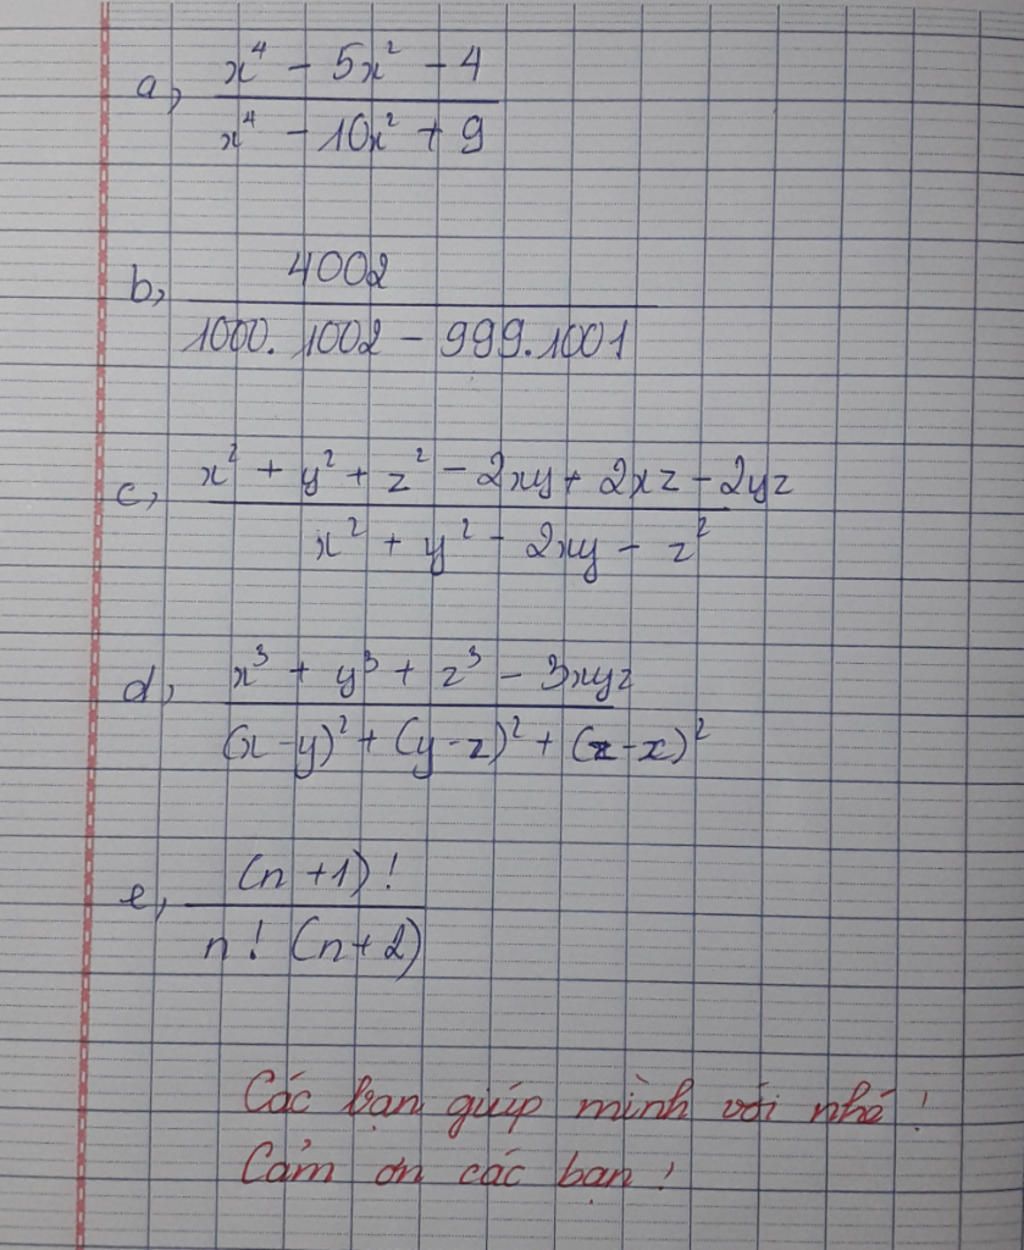 a, x⁴ - 5x² - 4 / x⁴ - 10x² + 9
b, 4002 / 1000. 1002 - 999.1001
c, x² + y² + z² - 2xy + 2xz - 2yz / x² + y² - 2xy - z²
d, x³ + y³ + z³ - 3xyz / (x - y)² + (y - z)² + (z - x)²
e, (n + 1)! / n! (n + 2)
Các bạn giúp mình với nhé!
Cảm ơn các bạn!